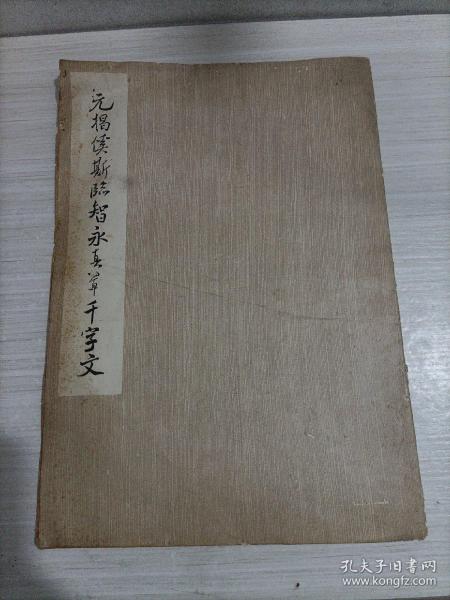 元揭傒斯临智永真草千字文
孔夫子旧书网
www.kongfz.com